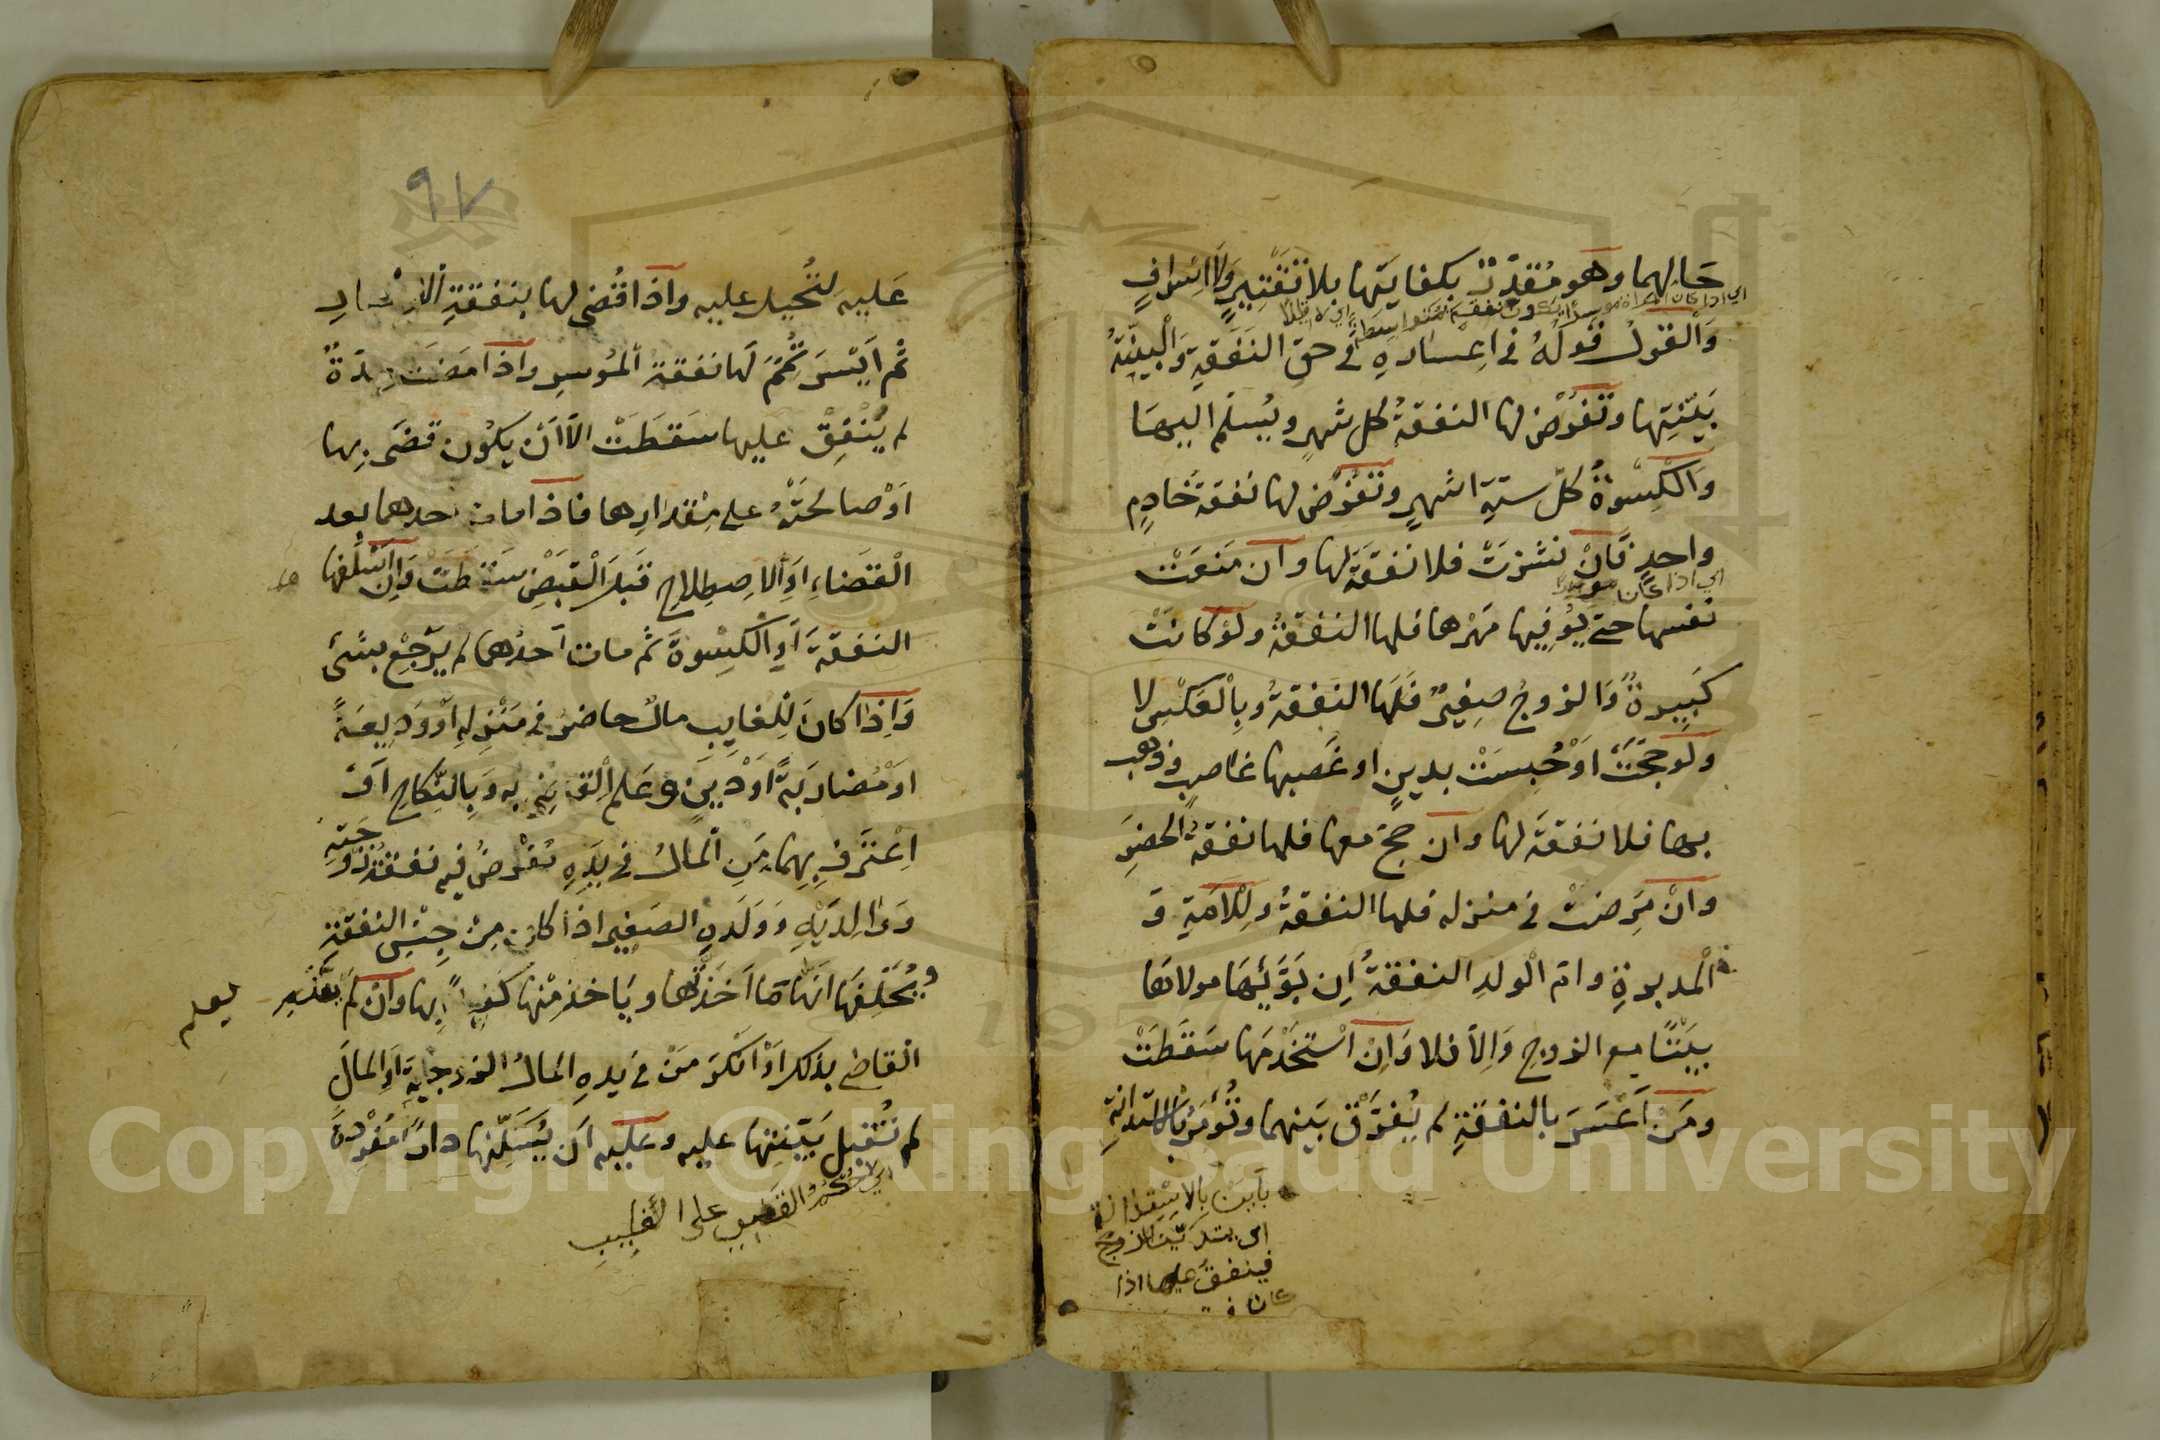 حالهما وهو مقدرة بكفايتها بلا تقتير ولا اسراف
والقول قوله في اعساره في حق النفقة والبينة
بينتها وتفرض لها النفقة كل شهر ويسلم اليها
والكسوة كل ستة اشهر وتفرض لها نفقة خادم
واحد فان نشزت فلا نفقة لها وان منعت
اي اذا كان
نفسها حتى يوفيها مهرها فلها النفقة ولو كانت
كبيرة والزوج صغير فلها النفقة وبالعكس لا
ولو حجت او حبست بدين او غصبها غاصب وذهب
بها فلا نفقة لها وان حج معها فلها نفقة الحضر
وان مرضت في منزله فلها النفقة وللامة و
المدبرة وام الولد النفقة ان بوئها مولاها
بيتا مع الزوج والا فلا وان استخدمها سقطت
ومن اعسر بالنفقة لم يفرق بينهما وتؤمر بالاستدانة
فينفق عليها اذا
كان
٩٧
عليه لتحيل عليه واذا قضى لها بنفقة الاعسار
ثم ايسر تمم لها نفقة الموسر واذا مضت مدة
لم ينفق عليها سقطت الا ان يكون قضى بها
او صالحته على مقدارها فاذا مات احدهما بعد
القضاء او الاصطلاح قبل القبض سقطت وان اسلفها
النفقة او الكسوة ثم مات احدهما لم يرجع بشئ
واذا كان للغايب مال حاضر في منزله او وديعة
او مضاربة او دين وعلم القاضي به وبالنكاح او
اعترف بهما من المال في يده تفرض فيه نفقة زوجته
ووالديه وولده الصغير اذا كان من جنس النفقة
ويحلفها انها ما اخذتها وياخذ منها كفيلا بها وان لم يعلم
القاضي بذلك او انكر من في يده المال الزوجية او المال
لم تقبل بينتها عليه وعليه ان يسكنها دارا مفردة
على الغايب